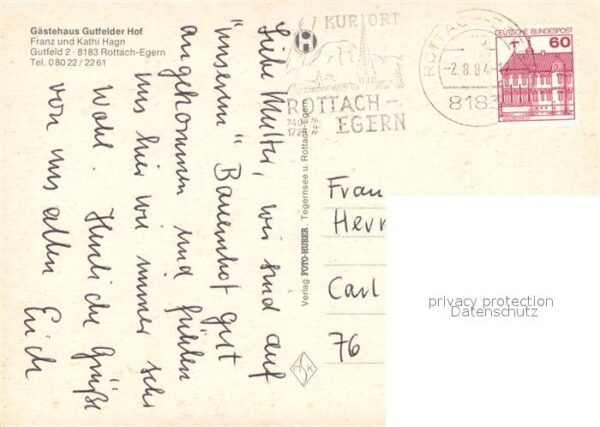 Gästehaus Gutfelder Hof
Franz und Kathi Hagn
Gutfeld 2 · 8183 Rottach-Egern
Tel. 08022/2261
Liebe Mutter, wir sind auf
"unserem" Bauernhof gut
angekommen und fühlen
uns hier wie immer sehr
wohl. Herzliche Grüße
von uns allen Erich
Verlag FOTO-HUBER · Tegernsee u. Rottach-Egern
KURORT
ROTTACH-
EGERN
ROTTACH-
-2.8.84-
8183
DEUTSCHE BUNDESPOST
60
Frau
Herr
Carl
76
privacy protection
Datenschutz